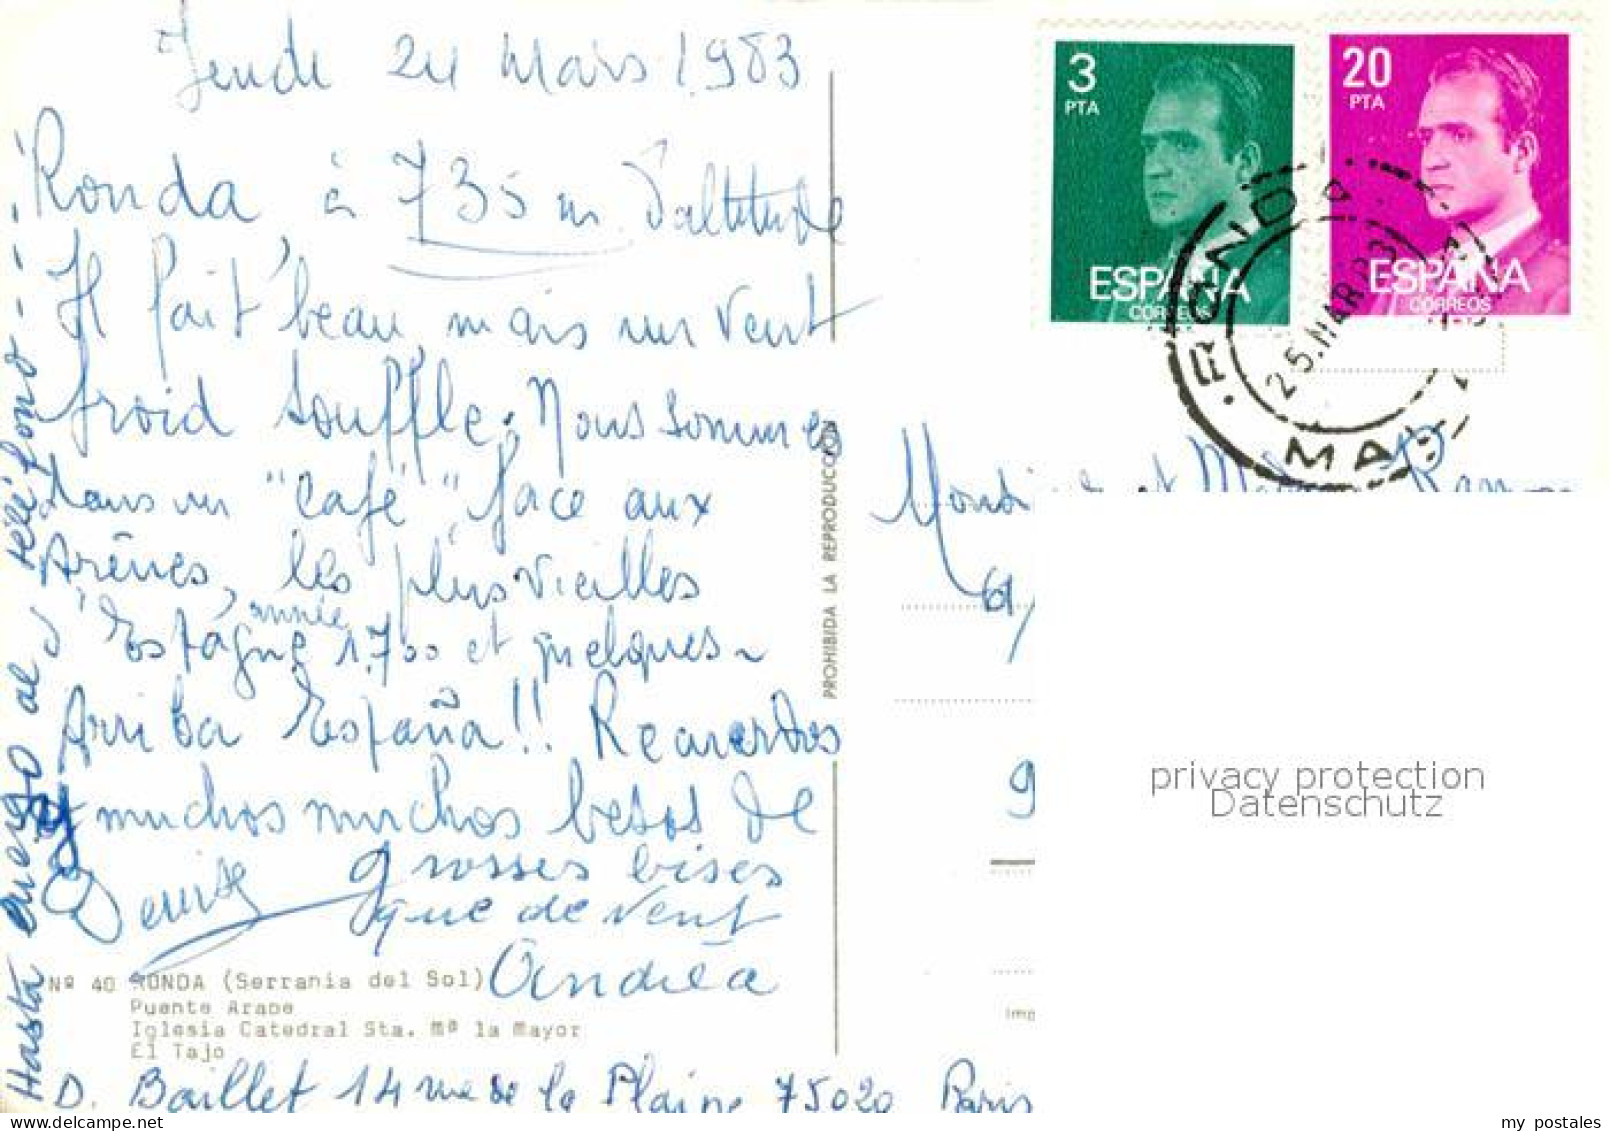 Jeudi 24 Mars 1983
Ronda à 735 m d'altitude
Il fait beau mais un vent
froid souffle. Nous sommes
dans un "café" face aux
Arènes, les plus vieilles
d'Espagne, année 1.700 et quelques~
Arriba España!! Recuerdos
y muchos muchos besos de
Denise
grosses bises
que de vent
Andréa
Hasta al teléfono
Nº 40 RONDA (Serrania del Sol)
Puente Arabe
Iglesia Catedral Sta. Mª la Mayor
El Tajo
D. Baillet 14 rue de la Plaine 75020 Paris
PROHIBIDA LA REPRODUCCIÓN
3
PTA
ESPAÑA
CORREOS
20
PTA
ESPAÑA
CORREOS
RONDA
25.MAR
MA
et
61,
9
Imp
privacy protection
Datenschutz
my postales